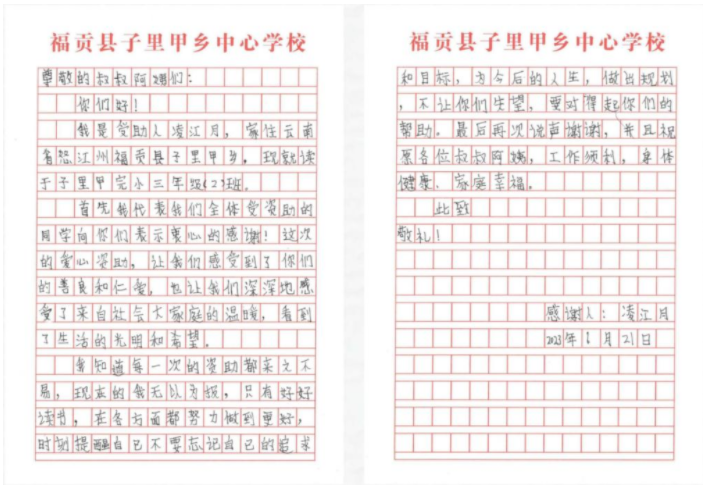 福贡县子里甲乡中心学校
尊敬的叔叔阿姨们：
你们好！
我是受助人凌江月，家住云南
省怒江州福贡县子里甲乡，现就读
于子里甲完小三年级（2）班。
首先我代表我们全体受资助的
同学向你们表示衷心的感谢！这次
的爱心资助，让我们感受到了你们
的善良和仁爱，也让我们深深地感
受了来自社会大家庭的温暖，看到
了生活的光明和希望。
我知道每一次的资助都来之不
易，现在的我无以为报，只有好好
读书，在各方面都努力做到更好，
时刻提醒自己不要忘记自己的追求
福贡县子里甲乡中心学校
和目标，为今后的人生，做出规划
，不让你们失望，要对得起你们的
帮助。最后再次说声谢谢，并且祝
愿各位叔叔阿姨，工作顺利，身体
健康，家庭幸福。
此致
敬礼！
感谢人：凌江月
2023年6月21日